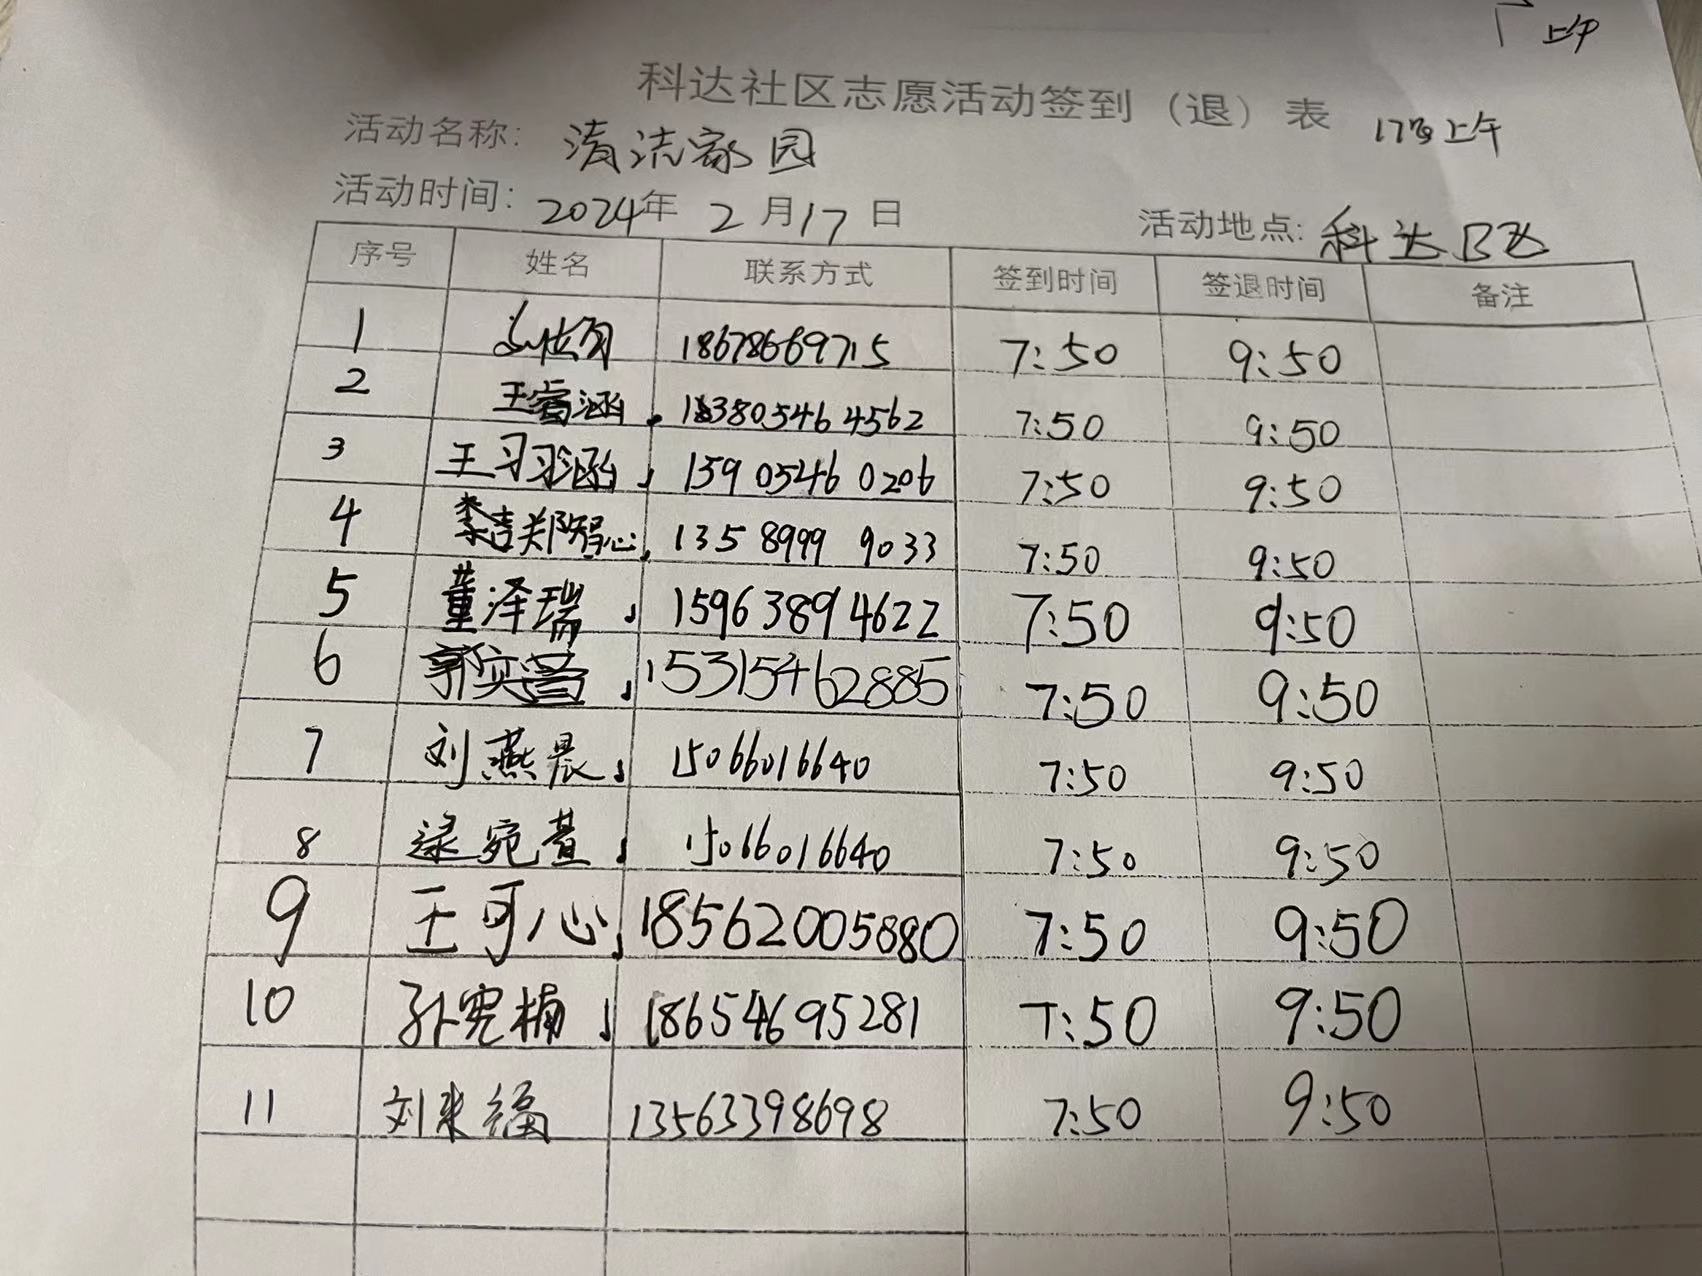 上午
科达社区志愿活动签到（退）表 17号上午
活动名称: 清洁家园
活动时间: 2024年 2月17日 活动地点: 科达B区
序号 姓名 联系方式 签到时间 签退时间 备注
1 18678669715 7:50 9:50
2 王睿涵 13805464562 7:50 9:50
3 王习习涵 15905460206 7:50 9:50
4 李吉郑智心 135 8999 9033 7:50 9:50
5 董泽瑞 15963894622 7:50 9:50
6 郭奕萱 15315462885 7:50 9:50
7 刘燕晨 15066016640 7:50 9:50
8 逯宛萱 15066016640 7:50 9:50
9 王可心 18562005880 7:50 9:50
10 孙宪楠 18654695281 7:50 9:50
11 刘来福 13563398698 7:50 9:50